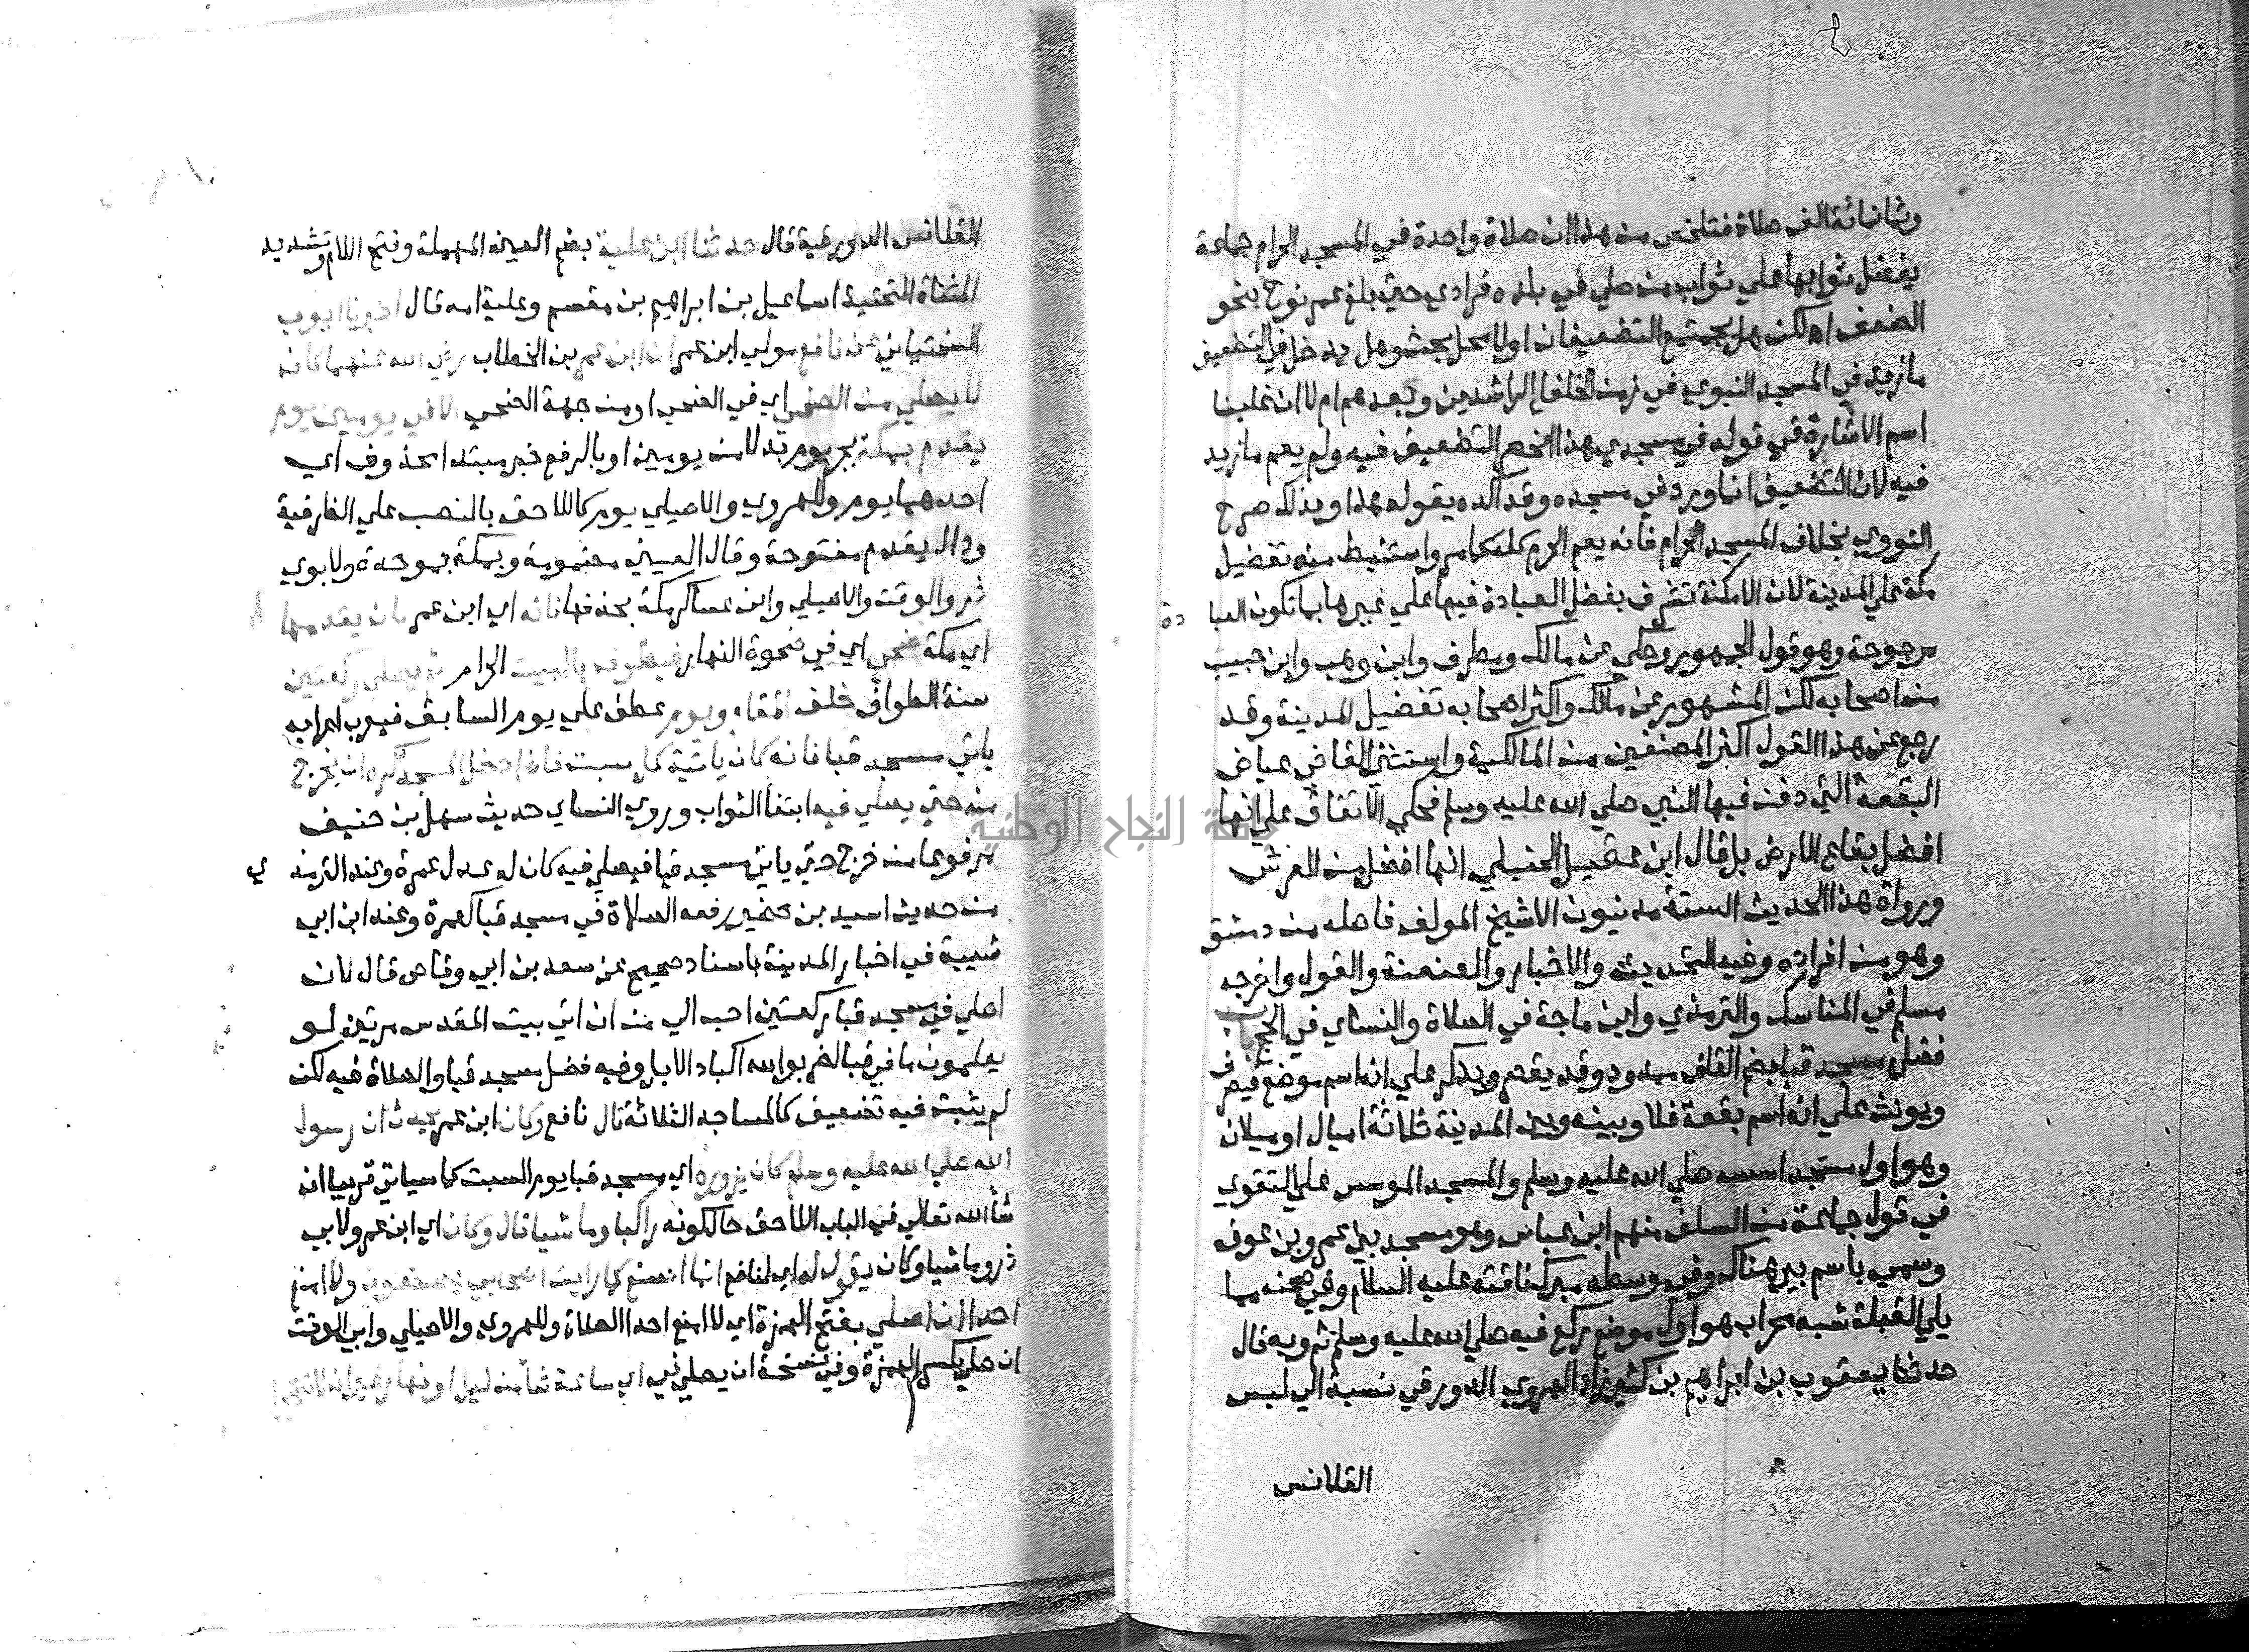 وثمانمائة الف صلاة فتلخص من هذا ان صلاة واحدة في المسجد الحرام جماعة
يفضل ثوابها علي ثواب من صلي في بلده فرادي حتي بلغ عمر نوح بنحو
الضعف اه لكن هل يجتمع التضعيفان اولا محل بحث وهل يدخل في التضعيف
ما زيد في المسجد النبوي في زمن الخلفا الراشدين وبعدهم ام لا ان غلبنا
اسم الاشارة في قوله في مسجدي هذا انحصر التضعيف فيه ولم يعم ما زيد
فيه لان التضعيف انما ورد في مسجده وقد اكده بقوله هذا وبذلك صرح
النووي بخلاف المسجد الحرام فانه يعم الحرم كله كما مر واستنبط منه تفضيل
مكة علي المدينة لان الامكنة تشرف بفضل العبادة فيها علي غيرها بما تكون العبادة
مرجوحة وهو قول الجمهور وحكي عن مالك ومطرف وابن وهب وابن حبيب
من اصحابه لكن المشهور عن مالك واكثر اصحابه تفضيل المدينة وقد
رجع عن هذا القول اكثر المصنفين من المالكية واستثني القاضي عياض
البقعة التي دفن فيها النبي صلي الله عليه وسلم فحكي الاتفاق علي انها
افضل بقاع الارض بل قال ابن عقيل الحنبلي انها افضل من العرش
ورواة هذا الحديث الستة مدنيون الا شيخ المولف فاصله من دمشق
وهو من افراده وفيه التحديث والاخبار والعنعنة والقول واخرجه
مسلم في المناسك والترمذي وابن ماجة في الصلاة والنساي في الحج باب
فضل مسجد قبا بضم القاف ممدود وقد يقصر ويذكر علي انه اسم موضع فيصرف
ويونث علي انه اسم بقعة فلا وبينه وبين المدينة ثلاثة اميال او ميلان
وهو اول مسجد اسسه صلي الله عليه وسلم والمسجد الموسس علي التقوي
في قول جماعة من السلف منهم ابن عباس وهو مسجد بني عمرو بن عوف
وسمي باسم بير هناك وفي وسطه مبرك ناقته عليه السلام وفي صحنه مما
يلي القبلة شبه محراب هو اول موضع ركع فيه صلي الله عليه وسلم ثم وبه قال
حدثنا يعقوب بن ابراهيم بن كثير زاد الهروي الدورقي نسبة الي لبس
القلانس
القلانس الدورقية قال حدثنا ابن علية بضم العين المهملة وفتح اللام وتشديد
المثناة التحتية اسماعيل بن ابراهيم بن مقسم وعلية امه قال اخبرنا ايوب
السختياني عن نافع مولي ابن عمر ان ابن عمر بن الخطاب رضي الله عنهما كان
لا يصلي من الضحي اي في الضحي او من جهة الضحي الا في يومين يوم
يقدم بمكة بجر يوم بدلا من يومين او بالرفع خبر مبتدا محذوف اي
احدهما يوم وللهروي والاصيلي يوم كاللاحق بالنصب علي الظرفية
ودال يقدم مفتوحة وقال العيني مضمومة وبمكة بموحدة ولابوي
ذر والوقت والاصيلي وابن عساكر مكة بحذفها فانه اي ابن عمر كان يقدمها
اي مكة ضحي اي في ضحوة النهار فيطوف بالبيت الحرام ثم يصلي ركعتين
سنة الطواف خلف المقام ويوم عطف علي يوم السابق فيعرب اعرابه
ياتي مسجد قبا فانه كان ياتيه كل سبت فاذا دخل المسجد كره ان يخرج
منه حتي يصلي فيه ابتغا الثواب وروي النساي حديث سهل بن حنيف
مرفوعا من خرج حتي ياتي مسجد قبا فيصلي فيه كان له عدل عمرة وعند الترمذي
من حديث اسيد بن حضير رفعه الصلاة في مسجد قبا كعمرة وعند ابن ابي
شيبة في اخبار المدينة باسناد صحيح عن سعد بن ابي وقاص قال لان
اصلي في مسجد قبا ركعتين احب الي من ان اتي بيت المقدس مرتين لو
يعلمون ما في قبا لضربوا اليه اكباد الابل وفيه فضل مسجد قبا والصلاة فيه لكن
لم يثبت فيه تضعيف كالمساجد الثلاثة قال نافع وكان ابن عمر يحدث ان رسول
الله صلي الله عليه وسلم كان يزوره اي مسجد قبا يوم السبت كما سياتي قريبا ان
شا الله تعالي في الباب اللاحق حال كونه راكبا وماشيا قال وكان اي ابن عمر ولابي
ذر وماشيا وكان يقول له اي لنافع انما اصنع كما رايت اصحابي يصنعون ولا امنع
احدا ان صلي بفتح الهمزة اي لا امنع احدا الصلاة وللهروي والاصيلي وابي الوقت
ان صلي بكسر الهمزة وفي نسخة ان يصلي في اي ساعة شا من ليل او نهار غير ان لا تتحروا